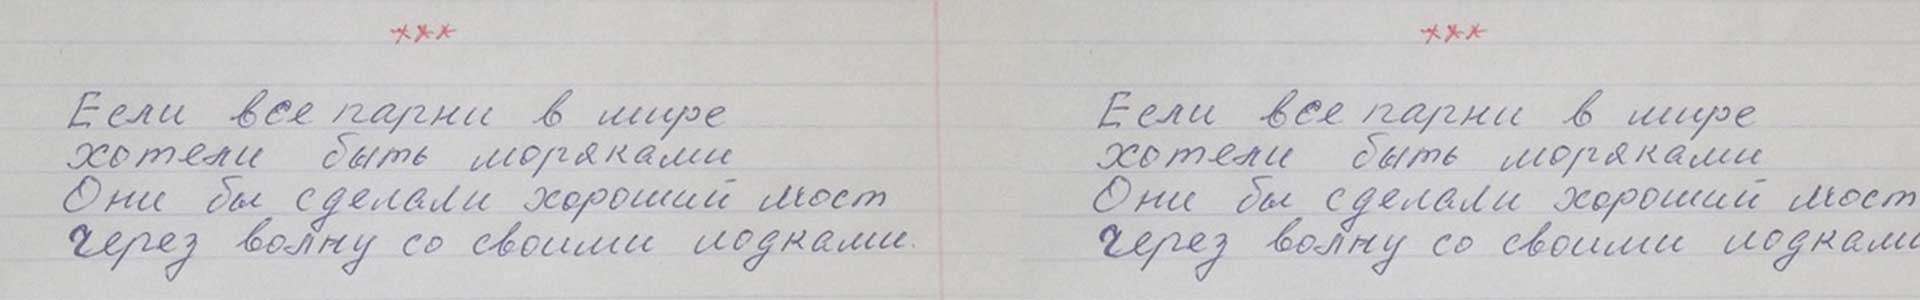 ***
Если все парни в мире
хотели быть моряками
Они бы сделали хороший мост
Через волну со своими лодками.
***
Если все парни в мире
хотели быть моряками
Они бы сделали хороший мост
Через волну со своими лодками